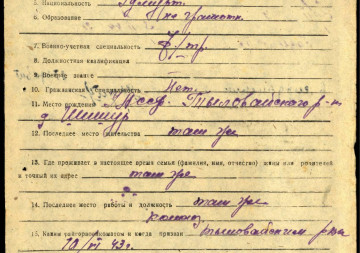 5. Национальность Удмурт
6. Образование грамотн
7. Военно-учетная специальность
8. Должностная квалификация
9. Военное звание
10. Гражданская специальность Нет
11. Место рождения УАССР. Тыловайского р-на
д
12. Последнее место жительства там же
13. Где проживает в настоящее время семья (фамилия, имя, отчество) жены или родителей
и точный их адрес там же
14. Последнее место работы и должность там же
колхоз
15. Каким райгорвоенкоматом и когда призван Тыловайским рвк
43 г.